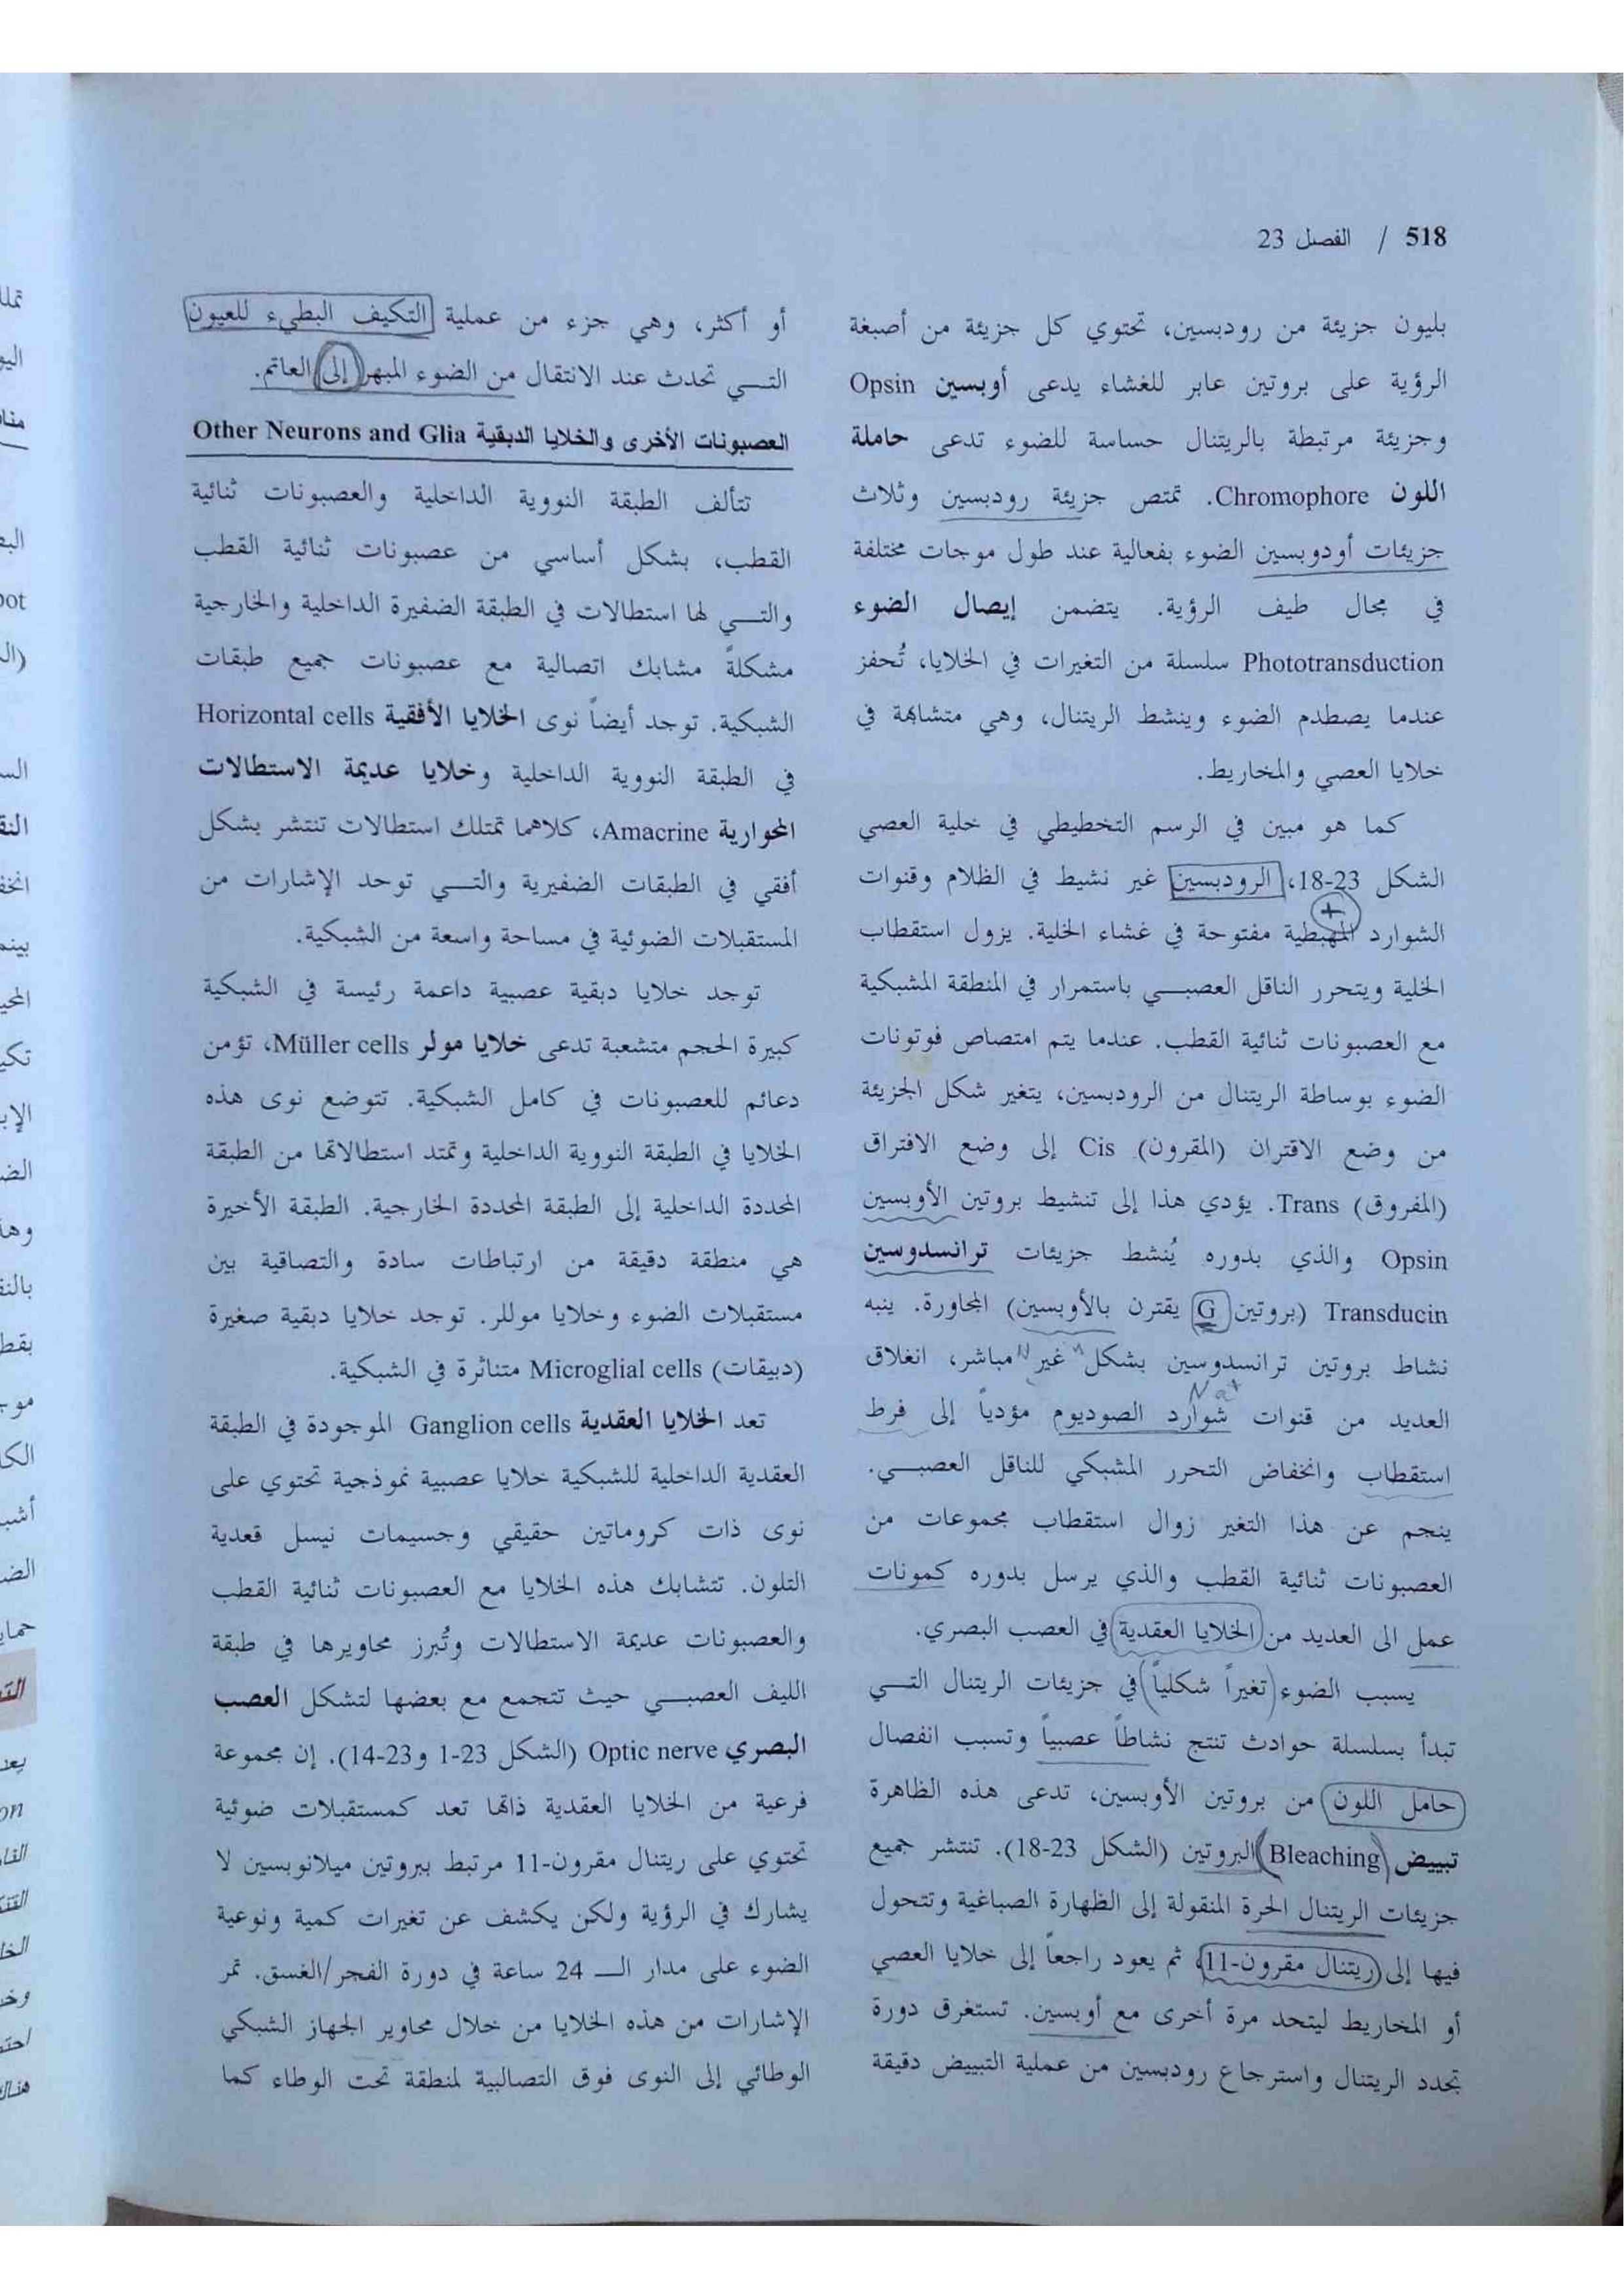 518 / الفصل 23
بليون جزيئة من رودبسين، تحتوي كل جزيئة من أصبغة
الرؤية على بروتين عابر للغشاء يدعى أوبسين Opsin
وجزيئة مرتبطة بالريتنال حساسة للضوء تدعى حاملة
اللون Chromophore. تمتص جزيئة رودبسين وثلاث
جزيئات أودوبسين الضوء بفعالية عند طول موجات مختلفة
في مجال طيف الرؤية. يتضمن إيصال الضوء
Phototransduction سلسلة من التغيرات في الخلايا، تُحفز
عندما يصطدم الضوء وينشط الريتنال، وهي متشابهة في
خلايا العصي والمخاريط.
كما هو مبين في الرسم التخطيطي في خلية العصي
الشكل 23-18، الرودبسين غير نشيط في الظلام وقنوات
+
الشوارد المهبطية مفتوحة في غشاء الخلية. يزول استقطاب
الخلية ويتحرر الناقل العصبـي باستمرار في المنطقة المشبكية
مع العصبونات ثنائية القطب. عندما يتم امتصاص فوتونات
الضوء بوساطة الريتنال من الرودبسين، يتغير شكل الجزيئة
من وضع الاقتران (المقرون) Cis إلى وضع الافتراق
(المفروق) Trans. يؤدي هذا إلى تنشيط بروتين الأوبسين
Opsin والذي بدوره يُنشط جزيئات ترانسدوسين
Transducin (بروتين G يقترن بالأوبسين) المجاورة. ينبه
نشاط بروتين ترانسدوسين بشكل غير مباشر، انغلاق
Na+
العديد من قنوات شوارد الصوديوم مؤدياً إلى فرط
استقطاب وانخفاض التحرر المشبكي للناقل العصبـي.
ينجم عن هذا التغير زوال استقطاب مجموعات من
العصبونات ثنائية القطب والذي يرسل بدوره كمونات
عمل الى العديد من الخلايا العقدية في العصب البصري.
يسبب الضوء (تغيراً شكلياً) في جزيئات الريتنال التـي
تبدأ بسلسلة حوادث تنتج نشاطاً عصبياً وتسبب انفصال
حامل اللون من بروتين الأوبسين، تدعى هذه الظاهرة
تبييض (Bleaching) البروتين (الشكل 23-18). تنتشر جميع
جزيئات الريتنال الحرة المنقولة إلى الظهارة الصباغية وتتحول
فيها إلى ريتنال مقرون-11، ثم يعود راجعاً إلى خلايا العصي
أو المخاريط ليتحد مرة أخرى مع أوبسين. تستغرق دورة
تجدد الريتنال واسترجاع رودبسين من عملية التبييض دقيقة
أو أكثر، وهي جزء من عملية التكيف البطيء للعيون
التـي تحدث عند الانتقال من الضوء المبهر إلى العاتم.
العصبونات الأخرى والخلايا الدبقية Other Neurons and Glia
تتألف الطبقة النووية الداخلية والعصبونات ثنائية
القطب، بشكل أساسي من عصبونات ثنائية القطب
والتـي لها استطالات في الطبقة الضفيرة الداخلية والخارجية
مشكلةً مشابك اتصالية مع عصبونات جميع طبقات
الشبكية. توجد أيضاً نوى الخلايا الأفقية Horizontal cells
في الطبقة النووية الداخلية وخلايا عديمة الاستطالات
المحوارية Amacrine، كلاهما تمتلك استطالات تنتشر بشكل
أفقي في الطبقات الضفيرية والتـي توحد الإشارات من
المستقبلات الضوئية في مساحة واسعة من الشبكية.
توجد خلايا دبقية عصبية داعمة رئيسة في الشبكية
كبيرة الحجم متشعبة تدعى خلايا مولر Müller cells، تؤمن
دعائم للعصبونات في كامل الشبكية. تتوضع نوى هذه
الخلايا في الطبقة النووية الداخلية وتمتد استطالاتها من الطبقة
المحددة الداخلية إلى الطبقة المحددة الخارجية. الطبقة الأخيرة
هي منطقة دقيقة من ارتباطات سادة والتصاقية بين
مستقبلات الضوء وخلايا موللر. توجد خلايا دبقية صغيرة
(دبيقات) Microglial cells متناثرة في الشبكية.
تعد الخلايا العقدية Ganglion cells الموجودة في الطبقة
العقدية الداخلية للشبكية خلايا عصبية نموذجية تحتوي على
نوى ذات كروماتين حقيقي وجسيمات نيسل قعدية
التلون. تتشابك هذه الخلايا مع العصبونات ثنائية القطب
والعصبونات عديمة الاستطالات وتُبرز محاويرها في طبقة
الليف العصبـي حيث تتجمع مع بعضها لتشكل العصب
البصري Optic nerve (الشكل 23-1 و23-14). إن مجموعة
فرعية من الخلايا العقدية ذاتها تعد كمستقبلات ضوئية
تحتوي على ريتنال مقرون-11 مرتبط ببروتين ميلانوبسين لا
يشارك في الرؤية ولكن يكشف عن تغيرات كمية ونوعية
الضوء على مدار الـ 24 ساعة في دورة الفجر/الغسق. تمر
الإشارات من هذه الخلايا من خلال محاوير الجهاز الشبكي
الوطائي إلى النوى فوق التصالبية لمنطقة تحت الوطاء كما